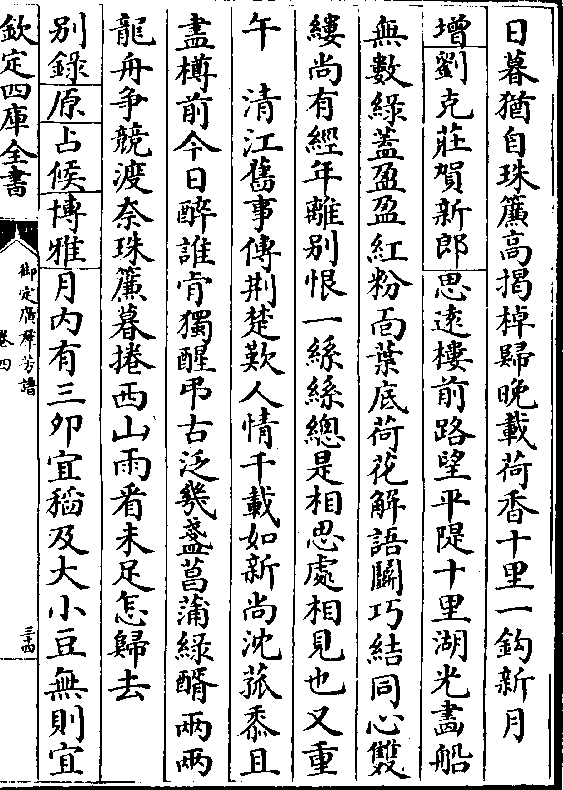 日暮猶自珠簾高揭棹歸晚載荷香十里一鈎新月
增劉克莊賀新郎思遠樓前路望平隄十里湖光畵船
無數綠蓋盈盈紅粉面葉底荷花解語鬭巧結同心雙
縷尚有經年離别恨一絲絲總是相思處相見也又重
午　清江舊事傳荆楚歎人情千載如新尚沈菰黍且
盡樽前今日醉誰肯獨醒弔古泛幾盞菖蒲綠醑兩兩
龍舟争競渡奈珠簾暮捲西山雨看未足怎歸去
别錄原占候博雅月内有三卯宜稻及大小豆無則宜
欽定四庫全書
御定廣羣芳譜
卷四
三十四